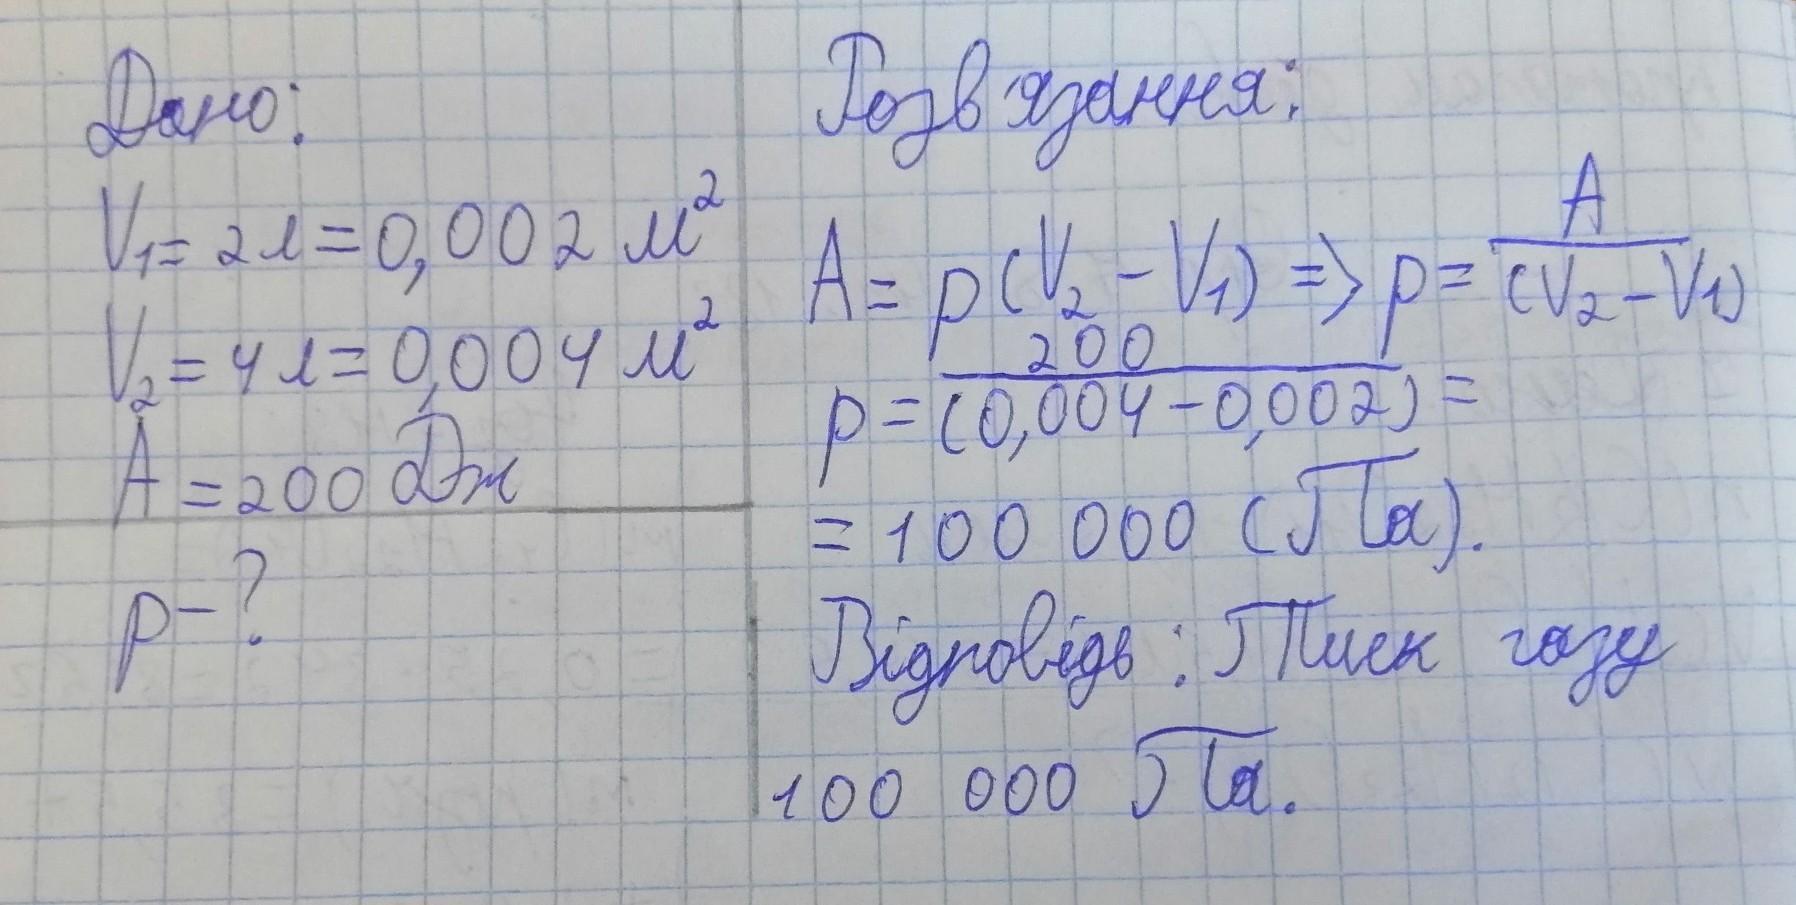 Дано:
V₁ = 2 л = 0,002 м²
V₂ = 4 л = 0,004 м²
A = 200 Дж
p - ?
Розв'язання:
A = p (V₂ - V₁) => p = A / (V₂ - V₁)
p = 200 / (0,004 - 0,002) =
= 100 000 (Па).
Відповідь: Тиск газу
100 000 Па.